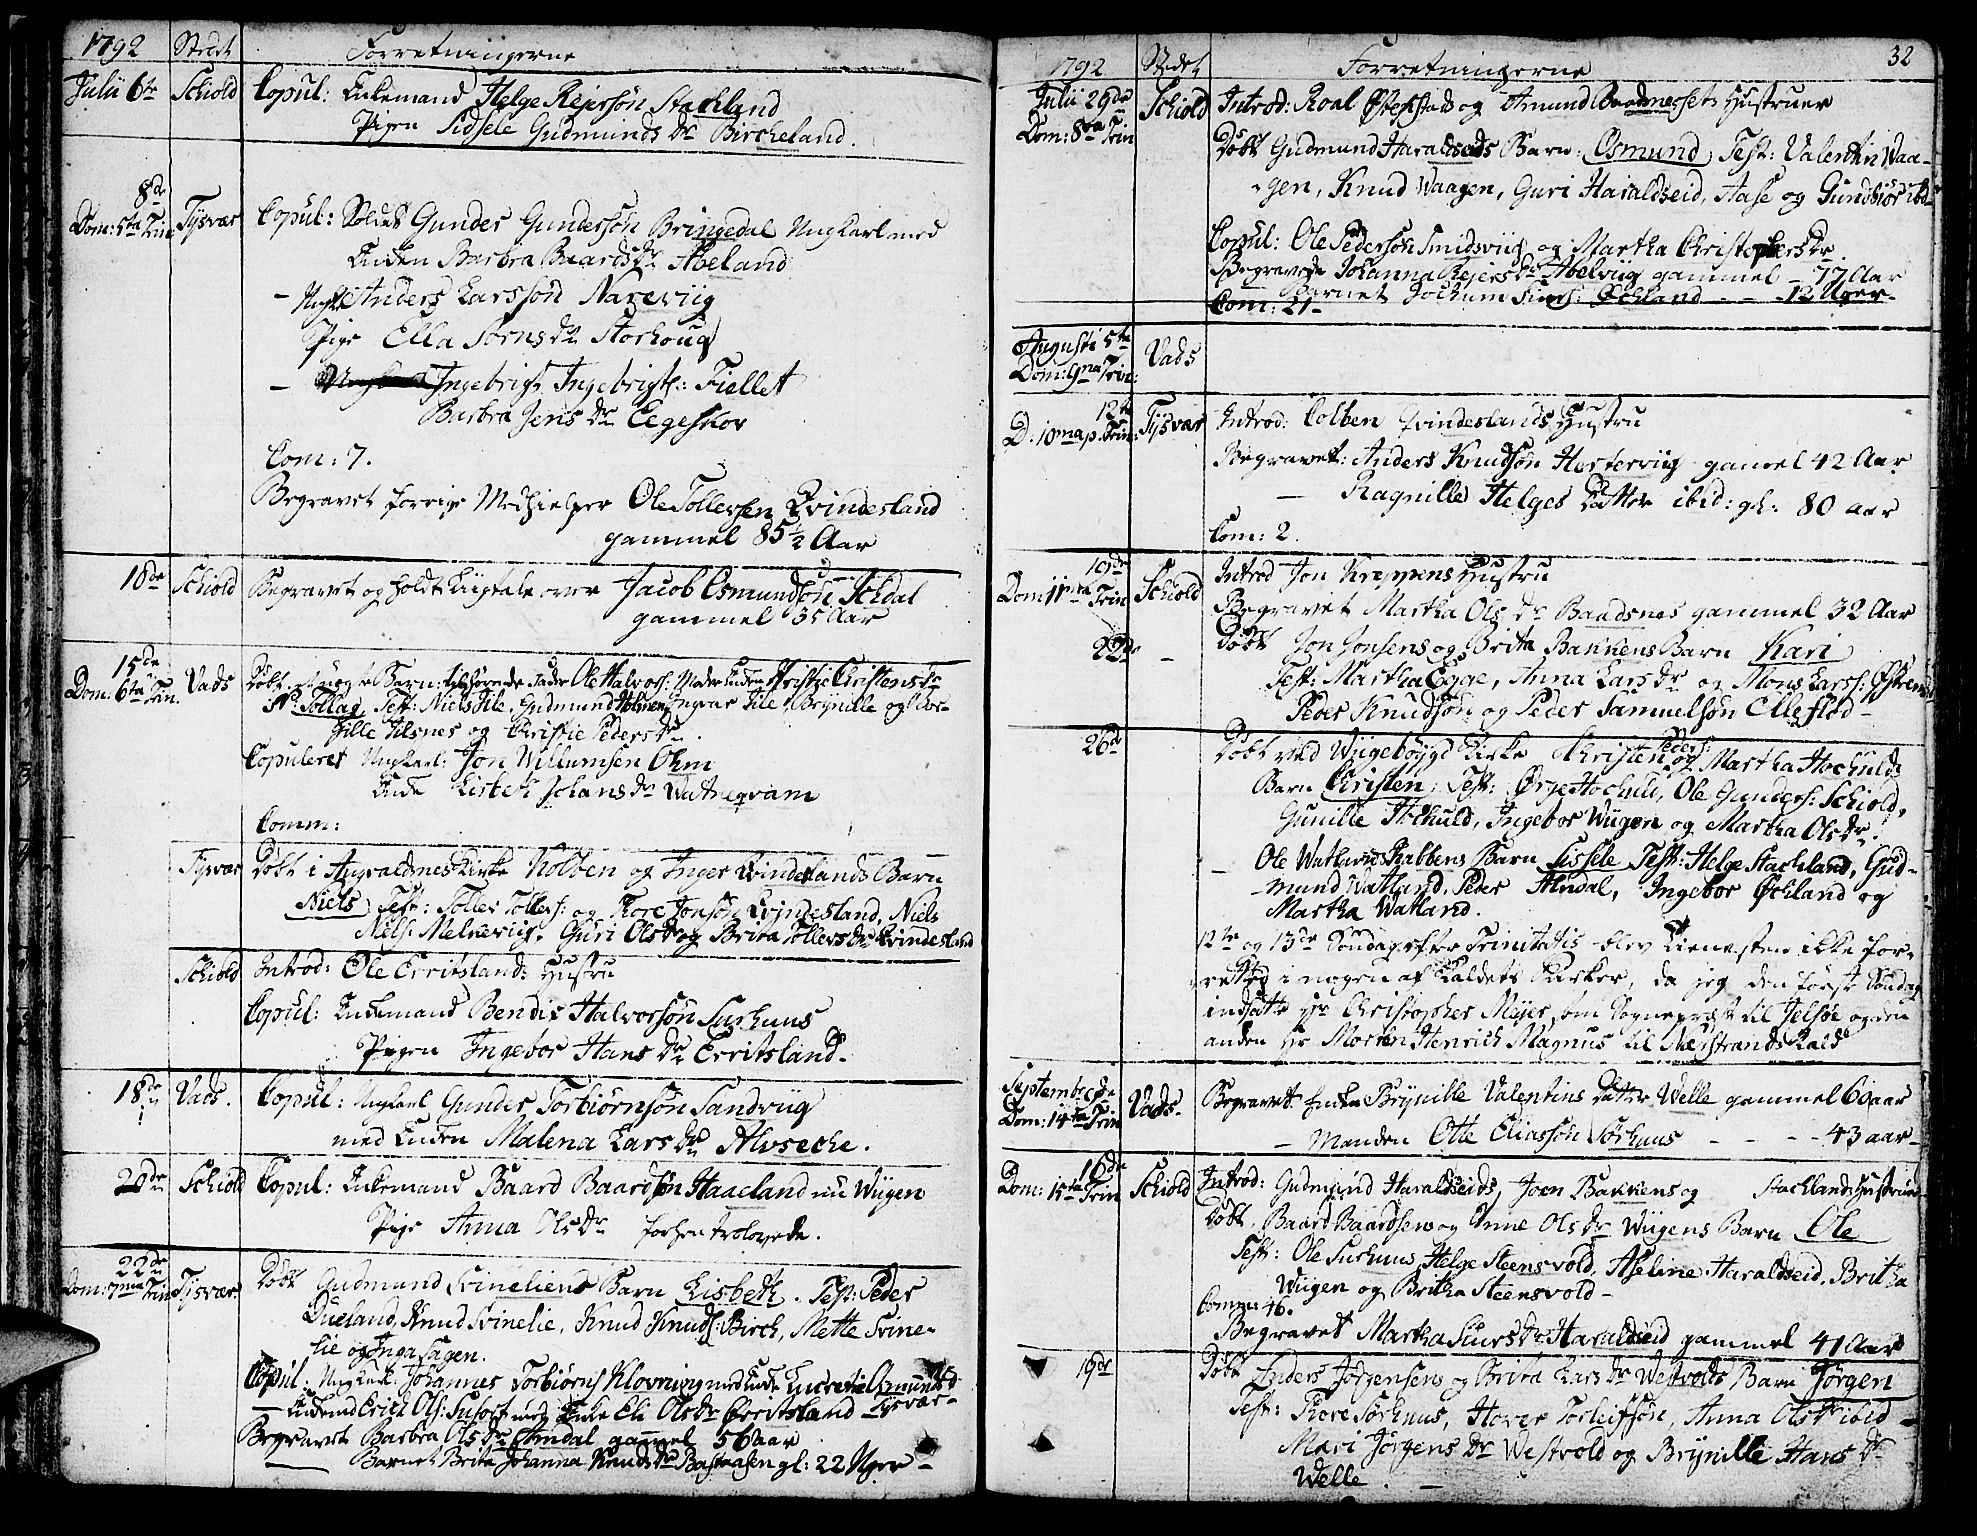 1792 Stedet Forretningerne
Julii 6te Schiold Copul: Enkemand Helge Rejersøn Stachland
Pigen Sidsele Gudmunds Dr Bircheland.
8de
Dom: 5ta Trin Tysvær Copul: Soldat Gunder Gundersøn Bringedal Ungkarl med
Enken Barbra Baards Dr Aбeland
- Anders Larssøn Narevig
Pige Ella Sørns Dr Storhoug
- Ingebrigt Ingebrigts: Fiellet
Barbra Jens Dr Eegeskov
Com: 7.
Begravet forrige Medhielper Ole Tollevsen Qvindesland
gammel 85½ Aar
10de Schiold Begravet og holdt Liigtale over Jacob Osmundsøn Schdal
gammel 35 Aar
15de
Dom: 6ta Trin. Vads Døbt et uægte Barn: tilhørende Fader Ole Halvors: Moder Enken Christie Christens Dr
N: Tollag, Test: Niels Ile, Gudmund Holmen, Ingvar Ile, Brynille og Tor-
Ilsnes og Christie Peders Dr.
Copuleret Ungkarl: Jon Willumsen Ohm
Enke Lisbeth Johans Dr Watneqvam
Comm:
Tysvær Døbt i Augvaldsnes Kirke Kolben og Inger Qvindeslands Barn
Niels, Test: Toller Tollers: og Tore Jonsøn Qvindesland, Niels
Niels: Melkeviig, Guri Ols Dr og Brita Tollevs Dr Qvindesland
Schiold Introd: Ole Erritslands Hustru
Copul: Enkemand Bendix Halvorsøn Surhuus
Pigen Ingebor Hans Dr Erritsland.
18de Vads. Copul: Ungkarl Gunder Torbiørnsøn Sandviig
med Enken Malena Lars Dr Alvseche.
20de Schiold Copul: Enkemand Baard Baardsøn Haaeland nu Wiigen
Pige Anna Ols Dr forhen trolovede.
22de
Dom: 7ma Trin Tysvær Døbt Gudmund Svineliens Barn Lisbeth. Test: Peder
Dueland, Knud Svinelie, Knud Knuds: Birch, Mette Svine-
lie og Inga Fagen.
Copul: Ungkarl: Johannes Torbiørns Klovning med Enke Lucretie Osmunds D
- Enkemd Erich Ols: Susort med Enke Eli Ols Dr Erritsland Tysvær-
Begravet Barbra Ols Dr Elmdal gammel 56 Aar
Barnet Brita Johanna Knuds Dr Bastaasen gl: 22 Uger -
1792 Stedet Forretningerne 32
Julii 29de Schiold Introd: Roal Østenstads og Amund Baadnessets Hustruer
Dom: 8va Trin Døbt Gudmund Haraldseids Barn: Osmund, Test: Valentin Waa-
gen, Knud Waagen, Guri Haraldseid, Aase og Gundbiør ibd-
Copul: Ole Pedersøn Smidsviig og Martha Christophers Dr.
Begravede Johanna Rejers Dr Abelviig gammel - 77 Aar
Barnet Jochum Simf: Øchland - - - 12 Uger -
Com: 21 -
Augusti 5te
Dom: 9na Trin: Vads
12te
D. 10ma p. Trin: Tysvær Introd: Colben Qvindeslands Hustru
Begravet: Anders Knudsøn Hesterviig gamel 42 Aar
- Ragnille Helges Datter ibid: gl. 80 aar
Com: 2.
19de
Dom 11ma Trin Schiold Introd Jon Kreppens Hustru
Begravet Martha Ols Dr Baadsnes gammel 32 Aar
22de - Døbt Jon Jonsens og Brita Bakkens Barn Kari
Test: Martha Egge, Anna Lars Dr og Mons Larss: Østrem
Peder Knudsøn og Peder Samuelsøn Elleflod -
26de Døbt ved Wiigebøygd Kirke Christen Peders: og Martha Hochulds
Barn Christen, Test: Ørge Hochuld, Ole Gunders: Schiold,
Gunille Hochuld, Ingebor Wiigen og Martha Ols Dr.
- Ole Watlands Krabbens Barn Sissele Test: Helge Stachland, Gud-
mund Watland, Peder Almdal, Ingebor Øchland og
Martha Watland.
12te og 13de Søndag efter Trinitatis blev Tienesten ikke for-
rettet i nogen af Kaldets Kirker, da jeg den første Søndag
indsatte Hr Christopher Mejer som Sognepræst til Jelsøe og den
anden Hr Morten Henrich Magnus til Nærstrands Kald
September 9de
Dom: 14ta Trin Vads. Begravet Enken Brynille Valentins Datter Welle gammel 60 aar
- Manden Otte Eliassøn Sørhuus - - - - 43 aar -
16de
Dom: 15ta Trin Schiold Introd: Gudmund Haraldseids, Joen Bakkens og Stachlands Hustruer
Døbt, Baard Baardsen og Anne Ols Dr Wiigens Barn Ole
Test: Ole Surhuus, Helge Steensvold, Aseline Haraldseid, Britha
Wiigen og Britha Steensvold -
Comm: 46.
Begravet Martha Siurs Dr Haraldseid gammel 41 Aar
19de Døbt Anders Jørgensen og Brita Lars Dr Westvolds Barn Jørgen
Test: Tore Sørhuus, Hover Torleifsøn, Anna Ols Dr ibid -
Mari Jørgens Dr Westvold og Brynille Hans Dr
Welle. -